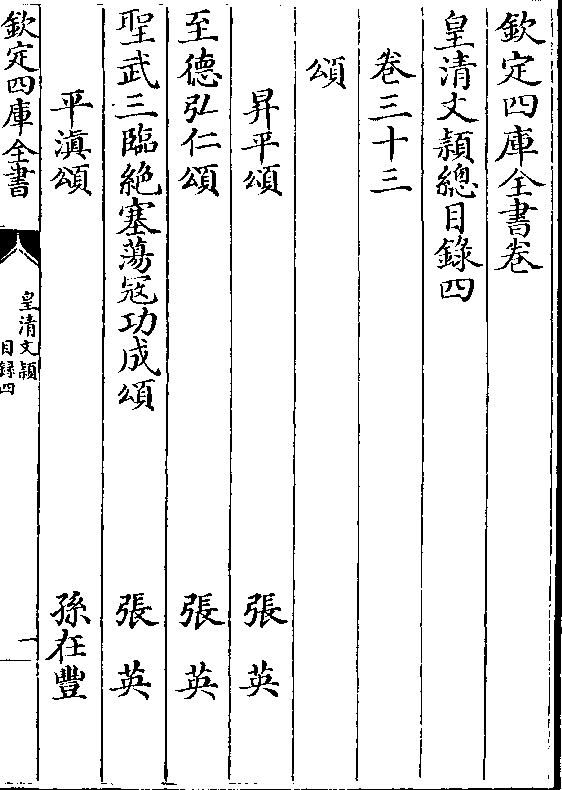 欽定四庫全書卷
皇清文穎總目錄四
卷三十三
頌
昇平頌 張英
至德弘仁頌 張英
聖武三臨絶塞蕩冦功成頌 張英
平滇頌 孫在豐
欽定四庫全書
皇清文穎
目録四
一